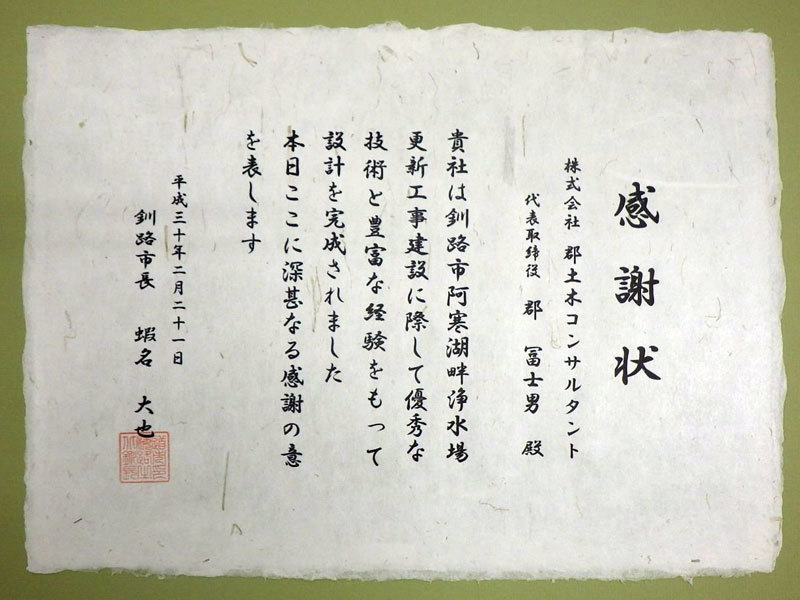 感謝状
株式会社 郡土木コンサルタント
代表取締役 郡 冨士男 殿
貴社は釧路市阿寒湖畔浄水場
更新工事建設に際して優秀な
技術と豊富な経験をもって
設計を完成されました
本日ここに深甚なる感謝の意
を表します
平成三十年二月二十一日
釧路市長 蝦名 大也